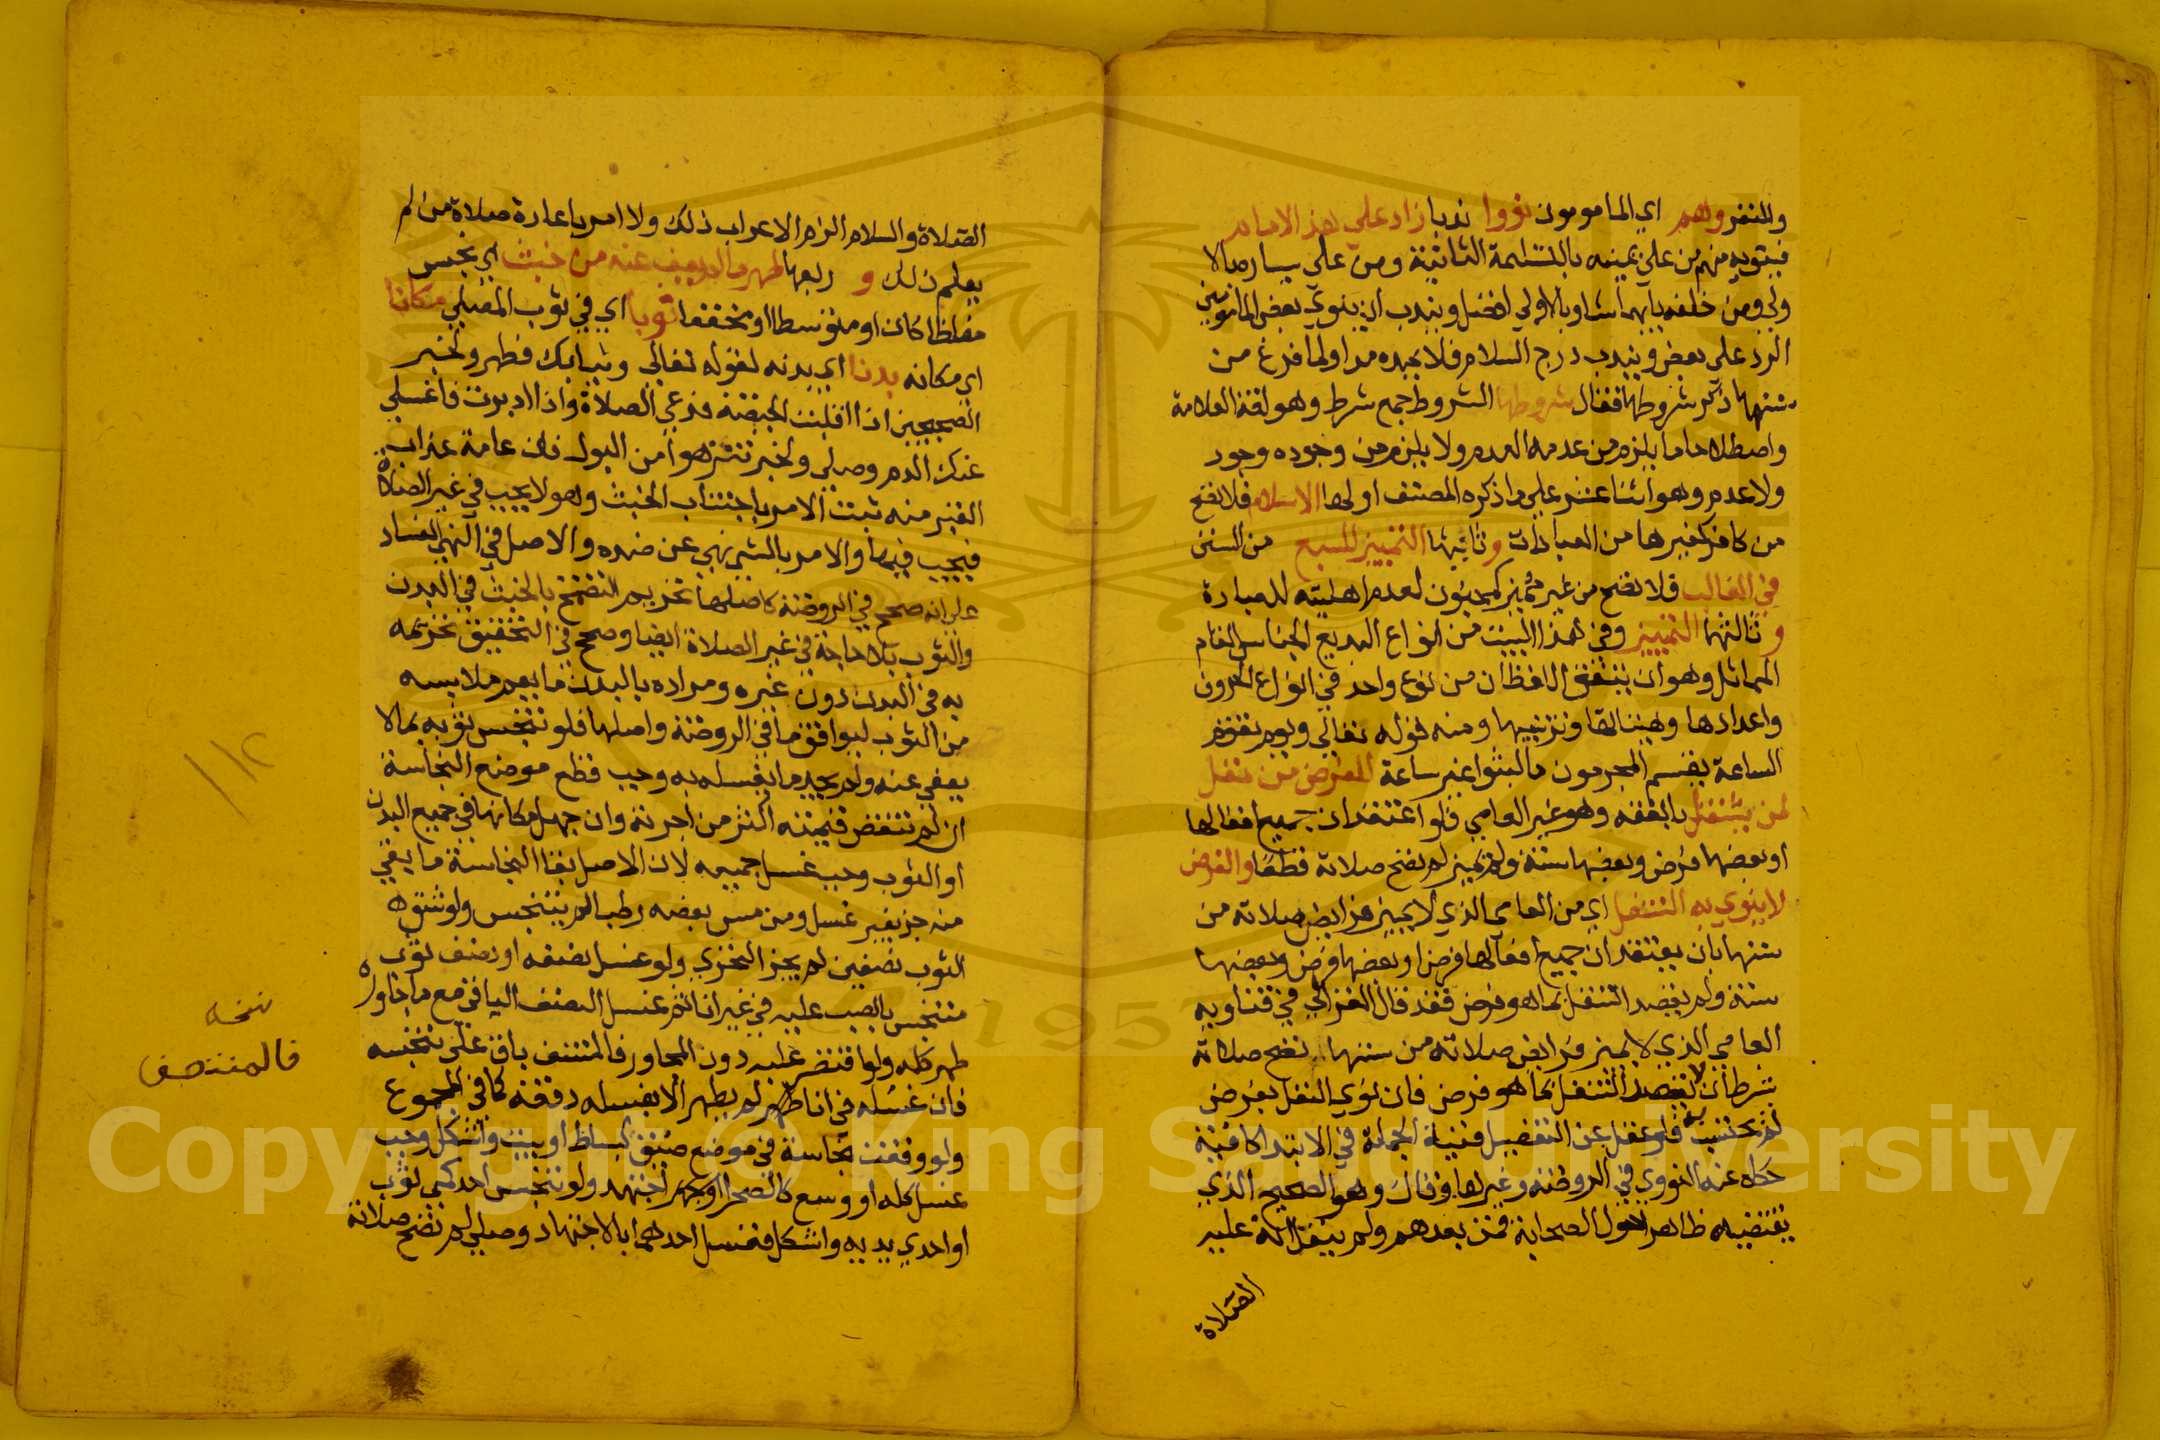 والنفر وهم اي المامومون نووا ندبا زاد علي هذا الامام
فينويه منهم من علي يمينه بالتسليمة الثانية ومن علي يساره بالا
ولي ومن خلفه بايهما شا وبالاولي افضل ويندب ان ينوي بعض المامومين
الرد علي بعض ويندب درج السلام فلا يمده مدا ولما فرغ من
سننها ذكر شروطها فقال شروطها الشروط جمع شرط وهو لغة العلامة
واصطلاحا ما يلزم من عدمه العدم ولا يلزم من وجوده وجود
ولا عدم وهو اثنا عشر علي ما ذكره المصنف اولها الاسلام فلا تصح
من كافر كغيرها من العبادات وثانيها التمييز للسبع من السنن
في الغالب فلا تصح من غير مميز كمجنون لعدم اهليته للعبادة
و ثالثها التمييز وفي هذا البيت من انواع البديع الجناس التام
المماثل وهو ان يتفق اللفظان من نوع واحد في انواع الحروف
واعدادها وهيئاتها وترتيبها ومنه قوله تعالي ويوم تقوم
الساعة يقسم المجرمون ما لبثوا غير ساعة للفرض من نفل
لمن يشتغل بالفقه وهو غير العامي فلو اعتقد ان جميع افعالها
او بعضها فرض وبعضها سنة ولم يميز لم تصح صلاته قطعا والفرض
لا ينوي به التنفل اي من العامي الذي لا يميز فرايض صلاته من
سننها بان يعتقد ان جميع افعالها فرض او بعضها فرض وبعضها
سنة ولم يقصد التنفل بما هو فرض فقد قال الغزالي في فتاويه
العامي الذي لا يميز فرايض صلاته من سننها تصح صلاته
بشرط ان لا يقصد التنفل بما هو فرض فان نوي النفل بفرض
لم يحتسب به فلو غفل عن التفصيل فنية الجملة في الابتدا كافية
حكاه عنه النووي في الروضة وغيرها وقال وهو الصحيح الذي
يقتضيه ظاهر احوال الصحابة فمن بعدهم ولم ينقل انه عليه
الصلاة
الصلاة والسلام الزم الاعراب ذلك ولا امر باعادة صلاة من لم
يعلم ذلك و رابعها طهر ما لم يعف عنه من خبث اي نجس
مغلظا كان او متوسطا او مخففا ثوبا اي في ثوب المصلي مكانا
اي مكانه بدنا اي بدنه لقوله تعالي وثيابك فطهر ولخبر
الصحيحين اذا اقبلت الحيضة فدعي الصلاة واذا ادبرت فاغسلي
عنك الدم وصلي ولخبر تنزهوا من البول فان عامة عذاب
القبر منه ثبت الامر باجتناب الخبث وهو لا يجب في غير الصلاة
فيجب فيها والامر بالشي نهي عن ضده والاصل في النهي الفساد
علي انه صحح في الروضة كاصلها تحريم التضمخ بالخبث في البدن
والثوب بلا حاجة في غير الصلاة ايضا وصحح في التحقيق تحريمه
به في البدن دون غيره ومراده بالبدن ما يعم ملابسه
من الثوب ليوافق ما في الروضة واصلها فلو تنجس ثوبه بما لا
يعفي عنه ولم يجد ما يغسله به وجب قطع موضع النجاسة
ان لم تنقص قيمته اكثر من اجرته وان جهل مكانها في جميع البدن
او الثوب وجب غسل جميعه لان الاصل بقا النجاسة ما بقي
منه جز بغير غسل ومن مس بعضه رطبا لم يتنجس ولو شق
الثوب نصفين لم يجز التحري ولو غسل نصفه او نصف ثوب
متنجس بالصب عليه في غير انا ثم غسل النصف الباقي مع ما جاوره
طهر كله ولو اقتصر عليه دون المجاور فالمنتصف باق علي تنجسه
فان غسله في انا طهر لم يطهر الا بغسله دفعة كما في المجموع
ولو وقعت نجاسة في موضع ضيق كبساط او بيت واشكل وجب
غسل كله او وسع كالصحرا وجهر اجتهد ولو تنجس احد كمي ثوب
او احدي يديه واشكل فغسل احدهما بالاجتهاد وصلي لم تصح صلاته
١١٢
نسخه
فالمنتصف
Copyright © King Saud University
1957